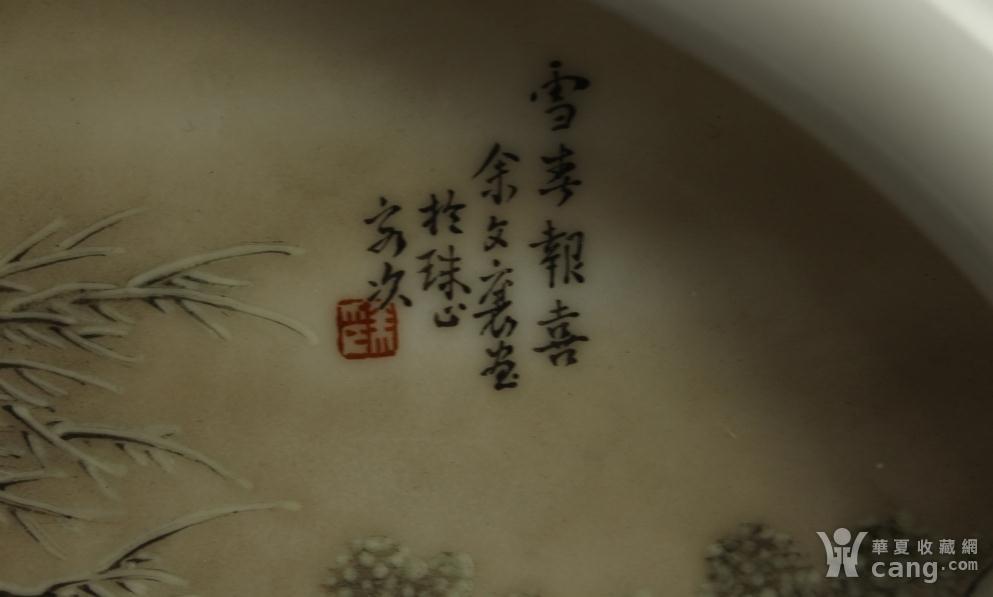 雪春報喜
余文襄畫
於珠山
客次
華夏收藏網
cang.com